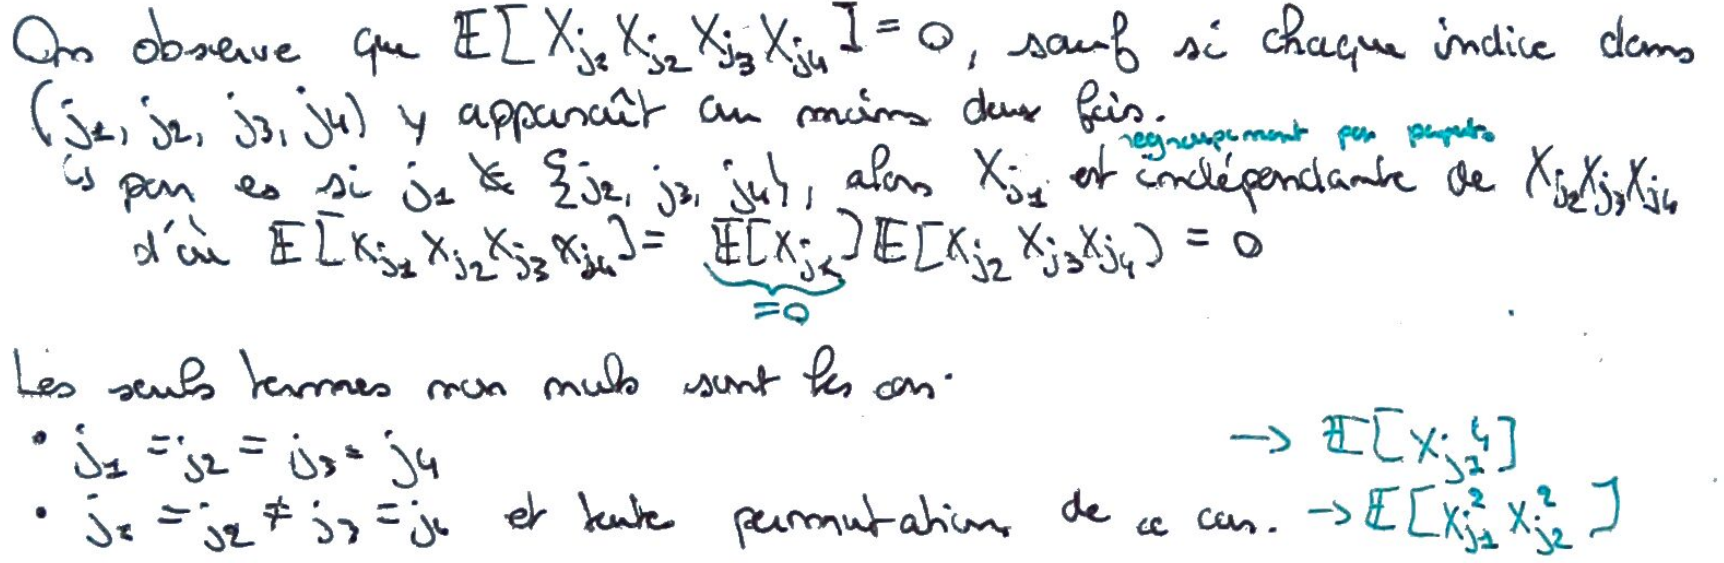 On observe que 𝔼[X_{j1} X_{j2} X_{j3} X_{j4}] = 0, sauf si chaque indice dans
(j1, j2, j3, j4) y apparaît au moins deux fois.
regroupement par paquets
↳ par ex si j1 ∉ {j2, j3, j4}, alors X_{j1} est indépendante de X_{j2}X_{j3}X_{j4}
d'où 𝔼[X_{j1} X_{j2} X_{j3} X_{j4}] = 𝔼[X_{j1}] 𝔼[X_{j2} X_{j3} X_{j4}] = 0
=0
Les seuls termes non nuls sont les cas:
• j1 = j2 = j3 = j4 → 𝔼[X_{j1}^4]
• j1 = j2 ≠ j3 = j4 et toute permutation de ce cas. → 𝔼[X_{j1}^2 X_{j2}^2]